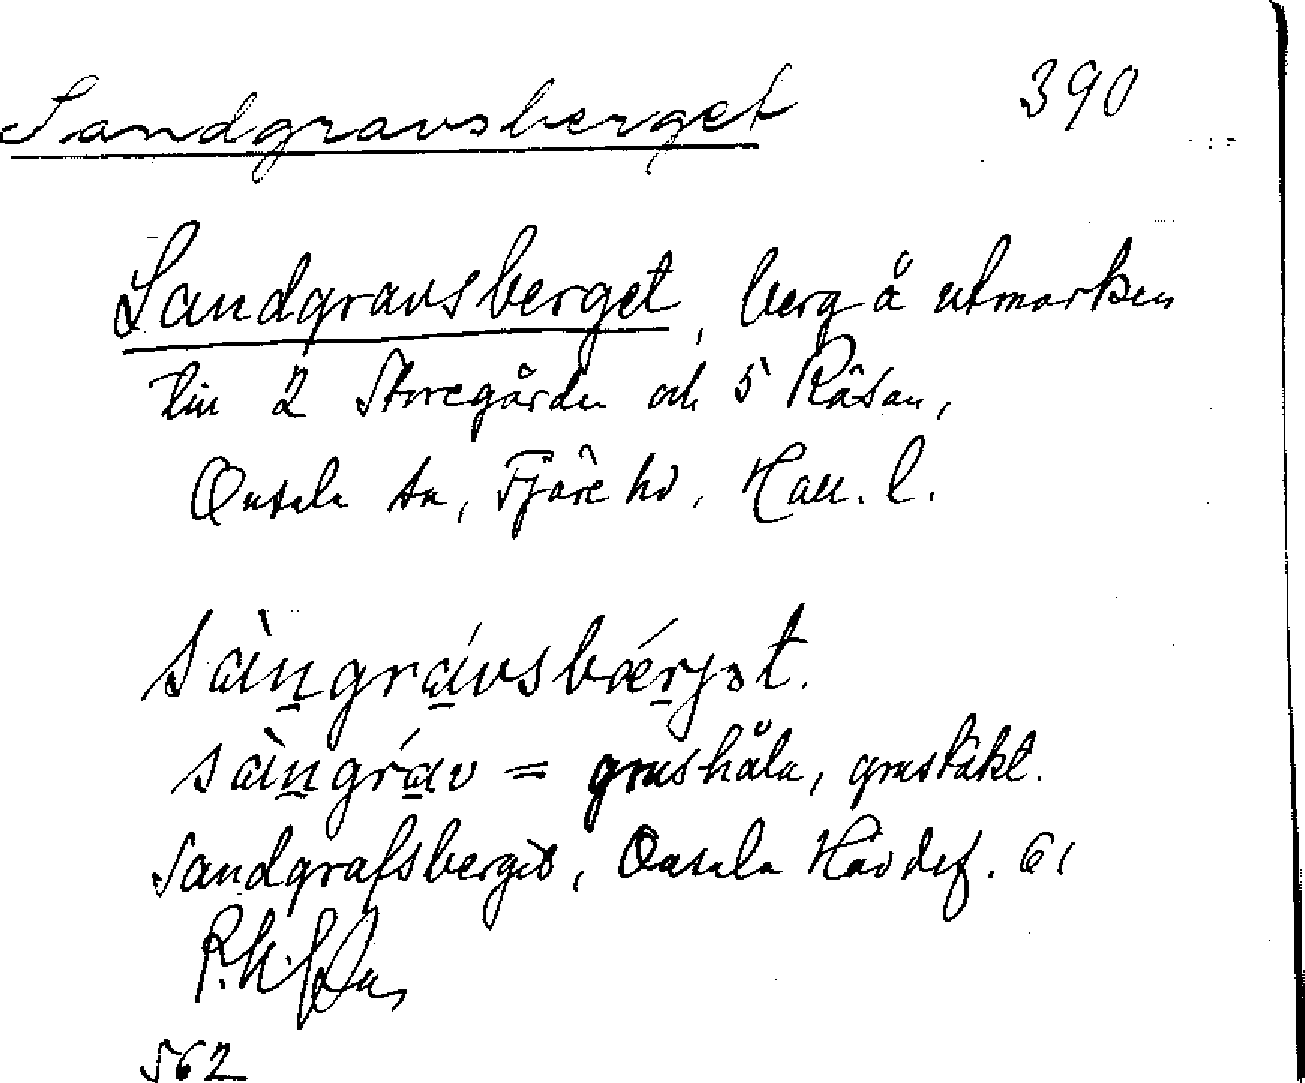 Sandgravsberget 390
Sandgravsberget, berg å utmarken
till 2 Storegården och 5 Råsan,
Onsala sn, Fjäre hd, Hall. l.
sàngrávsbǽrjət.
sàngráv = grushåla, grustäkt.
Sandgrafsberget, Onsala Häv def. 61
562